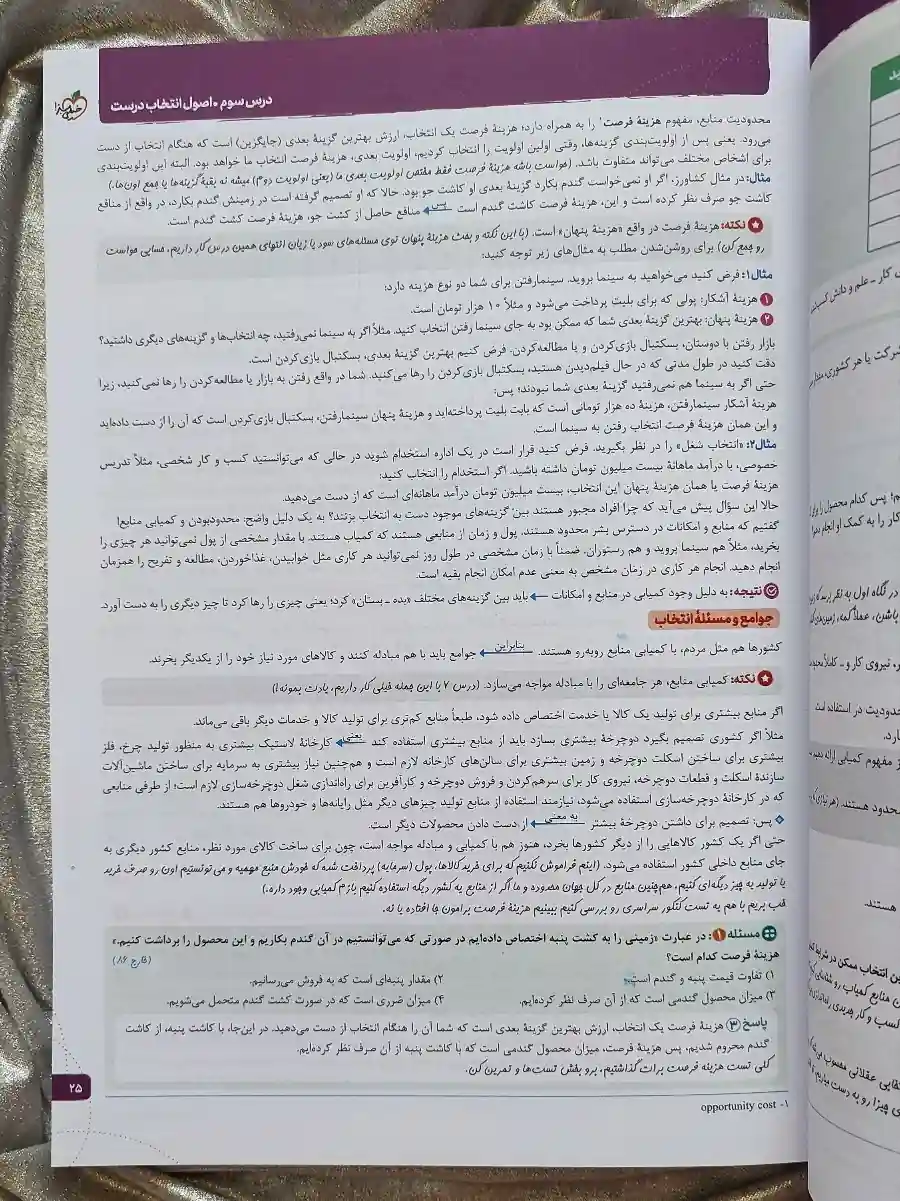 درس سوم • اصول انتخاب درست
محدودیت منابع، مفهوم هزینهٔ فرصت۱ را به همراه دارد؛ هزینهٔ فرصت یک انتخاب، ارزش بهترین گزینهٔ بعدی (جایگزین) است که هنگام انتخاب از دست
می‌رود. یعنی پس از اولویت‌بندی گزینه‌ها، وقتی اولین اولویت را انتخاب کردیم، اولویت بعدی، هزینهٔ فرصت انتخاب ما خواهد بود. البته این اولویت‌بندی
برای اشخاص مختلف می‌تواند متفاوت باشد. (حواست باشه هزینهٔ فرصت فقط مختص اولویت بعدی ما (یعنی اولویت دوم) میشه نه بقیهٔ گزینه‌ها یا جمع اون‌ها.)
مثال: در مثال کشاورز، اگر او نمی‌خواست گندم بکارد گزینهٔ بعدی او کاشت جو بود. حالا که او تصمیم گرفته است در زمینش گندم بکارد، در واقع از منافع
کاشت جو صرف نظر کرده است و این، هزینهٔ فرصت کاشت گندم است پس منافع حاصل از کشت جو، هزینهٔ فرصت کشت گندم است.
نکته: هزینهٔ فرصت در واقع «هزینهٔ پنهان» است. (با این نکته و بحث هزینهٔ پنهان توی مسئله‌های سود یا زیان انتهای همین درس کار داریم، حسابی حواست
رو جمع کن) برای روشن‌شدن مطلب به مثال‌های زیر توجه کنید:
مثال۱: فرض کنید می‌خواهید به سینما بروید. سینمارفتن برای شما دو نوع هزینه دارد:
۱ هزینهٔ آشکار: پولی که برای بلیت پرداخت می‌شود و مثلاً ۱۰ هزار تومان است.
۲ هزینهٔ پنهان: بهترین گزینهٔ بعدی شما که ممکن بود به جای سینما رفتن انتخاب کنید. مثلاً اگر به سینما نمی‌رفتید، چه انتخاب‌ها و گزینه‌های دیگری داشتید؟
بازار رفتن با دوستان، بسکتبال بازی‌کردن و یا مطالعه‌کردن. فرض کنیم بهترین گزینهٔ بعدی، بسکتبال بازی‌کردن است.
دقت کنید در طول مدتی که در حال فیلم‌دیدن هستید، بسکتبال بازی‌کردن را رها می‌کنید. شما در واقع رفتن به بازار یا مطالعه‌کردن را رها نمی‌کنید، زیرا
حتی اگر به سینما هم نمی‌رفتید گزینهٔ بعدی شما نبودند؛ پس:
هزینهٔ آشکار سینمارفتن، هزینهٔ ده هزار تومانی است که بابت بلیت پرداخته‌اید و هزینهٔ پنهان سینمارفتن، بسکتبال بازی‌کردن است که آن را از دست داده‌اید
و این همان هزینهٔ فرصت انتخاب رفتن به سینما است.
مثال۲: «انتخاب شغل» را در نظر بگیرید. فرض کنید قرار است در یک اداره استخدام شوید در حالی که می‌توانستید کسب و کار شخصی، مثلاً تدریس
خصوصی، با درآمد ماهانهٔ بیست میلیون تومان داشته باشید. اگر استخدام را انتخاب کنید:
هزینهٔ فرصت یا همان هزینهٔ پنهان این انتخاب، بیست میلیون تومان درآمد ماهانه‌ای است که از دست می‌دهید.
حالا این سؤال پیش می‌آید که چرا افراد مجبور هستند بین گزینه‌های موجود دست به انتخاب بزنند؟ به یک دلیل واضح: محدودبودن و کمیابی منابع!
گفتیم که منابع و امکانات در دسترس بشر محدود هستند. پول و زمان از منابعی هستند که کمیاب هستند. با مقدار مشخصی از پول نمی‌توانید هر چیزی را
بخرید، مثلاً هم سینما بروید و هم رستوران. ضمناً با زمان مشخصی در طول روز نمی‌توانید هر کاری مثل خوابیدن، غذاخوردن، مطالعه و تفریح را همزمان
انجام دهید. انجام هر کاری در زمان مشخص به معنی عدم امکان انجام بقیه است.
نتیجه: به دلیل وجود کمیابی در منابع و امکانات باید بین گزینه‌های مختلف «بده ـ بستان» کرد؛ یعنی چیزی را رها کرد تا چیز دیگری را به دست آورد.
جوامع و مسئلهٔ انتخاب
کشورها هم مثل مردم، با کمیابی منابع روبه‌رو هستند. بنابراین جوامع باید با هم مبادله کنند و کالاهای مورد نیاز خود را از یکدیگر بخرند.
نکته: کمیابی منابع، هر جامعه‌ای را با مبادله مواجه می‌سازد. (درس ۷ با این جمله خیلی کار داریم، یادت بمونه!)
اگر منابع بیشتری برای تولید یک کالا یا خدمت اختصاص داده شود، طبعاً منابع کم‌تری برای تولید کالا و خدمات دیگر باقی می‌ماند.
مثلاً اگر کشوری تصمیم بگیرد دوچرخهٔ بیشتری بسازد باید از منابع بیشتری استفاده کند یعنی کارخانهٔ لاستیک بیشتری به منظور تولید چرخ، فلز
بیشتری برای ساختن اسکلت دوچرخه و زمین بیشتری برای سالن‌های کارخانه لازم است و هم‌چنین نیاز بیشتری به سرمایه برای ساختن ماشین‌آلات
سازندهٔ اسکلت و قطعات دوچرخه، نیروی کار برای سرهم‌کردن و فروش دوچرخه و کارآفرین برای راه‌اندازی شغل دوچرخه‌سازی لازم است؛ از طرفی منابعی
که در کارخانهٔ دوچرخه‌سازی استفاده می‌شود، نیازمند استفاده از منابع تولید چیزهای دیگر مثل رایانه‌ها و خودروها هم هستند.
پس: تصمیم برای داشتن دوچرخهٔ بیشتر به معنی از دست دادن محصولات دیگر است.
حتی اگر یک کشور کالاهایی را از دیگر کشورها بخرد، هنوز هم با کمیابی و مبادله مواجه است، چون برای ساخت کالای مورد نظر، منابع کشور دیگری به
جای منابع داخلی کشور استفاده می‌شود. (اینم فراموش نکنیم که برای خرید کالاها، پول (سرمایه) پرداخت شده که خودش منبع مهمیه و می‌تونستیم اون رو صرف خرید
یا تولید یه چیز دیگه‌ای کنیم. هم‌چنین منابع در کل جهان محدوده و ما اگر از منابع یه کشور دیگه استفاده کنیم بازم کمیابی وجود داره.)
خب بریم با هم یه تست کنکور سراسری رو بررسی کنیم ببینیم هزینهٔ فرصت برامون جا افتاده یا نه.
مسئله ۱: در عبارت «زمینی را به کشت پنبه اختصاص داده‌ایم در صورتی که می‌توانستیم در آن گندم بکاریم و این محصول را برداشت کنیم.»
هزینهٔ فرصت کدام است؟ (خارج ۸۶)
۱) تفاوت قیمت پنبه و گندم است. ۲) مقدار پنبه‌ای است که به فروش می‌رسانیم.
۳) میزان محصول گندمی است که از آن صرف نظر کرده‌ایم. ۴) میزان ضرری است که در صورت کشت گندم متحمل می‌شویم.
پاسخ ۳ هزینهٔ فرصت یک انتخاب، ارزش بهترین گزینهٔ بعدی است که شما آن را هنگام انتخاب از دست می‌دهید. در این‌جا، با کاشت پنبه، از کاشت
گندم محروم شدیم، پس هزینهٔ فرصت، میزان محصول گندمی است که با کاشت پنبه از آن صرف نظر کرده‌ایم.
کلی تست هزینه فرصت برات گذاشتیم. برو بخش تست‌ها و تمرین کن.
۱- opportunity cost
۲۵